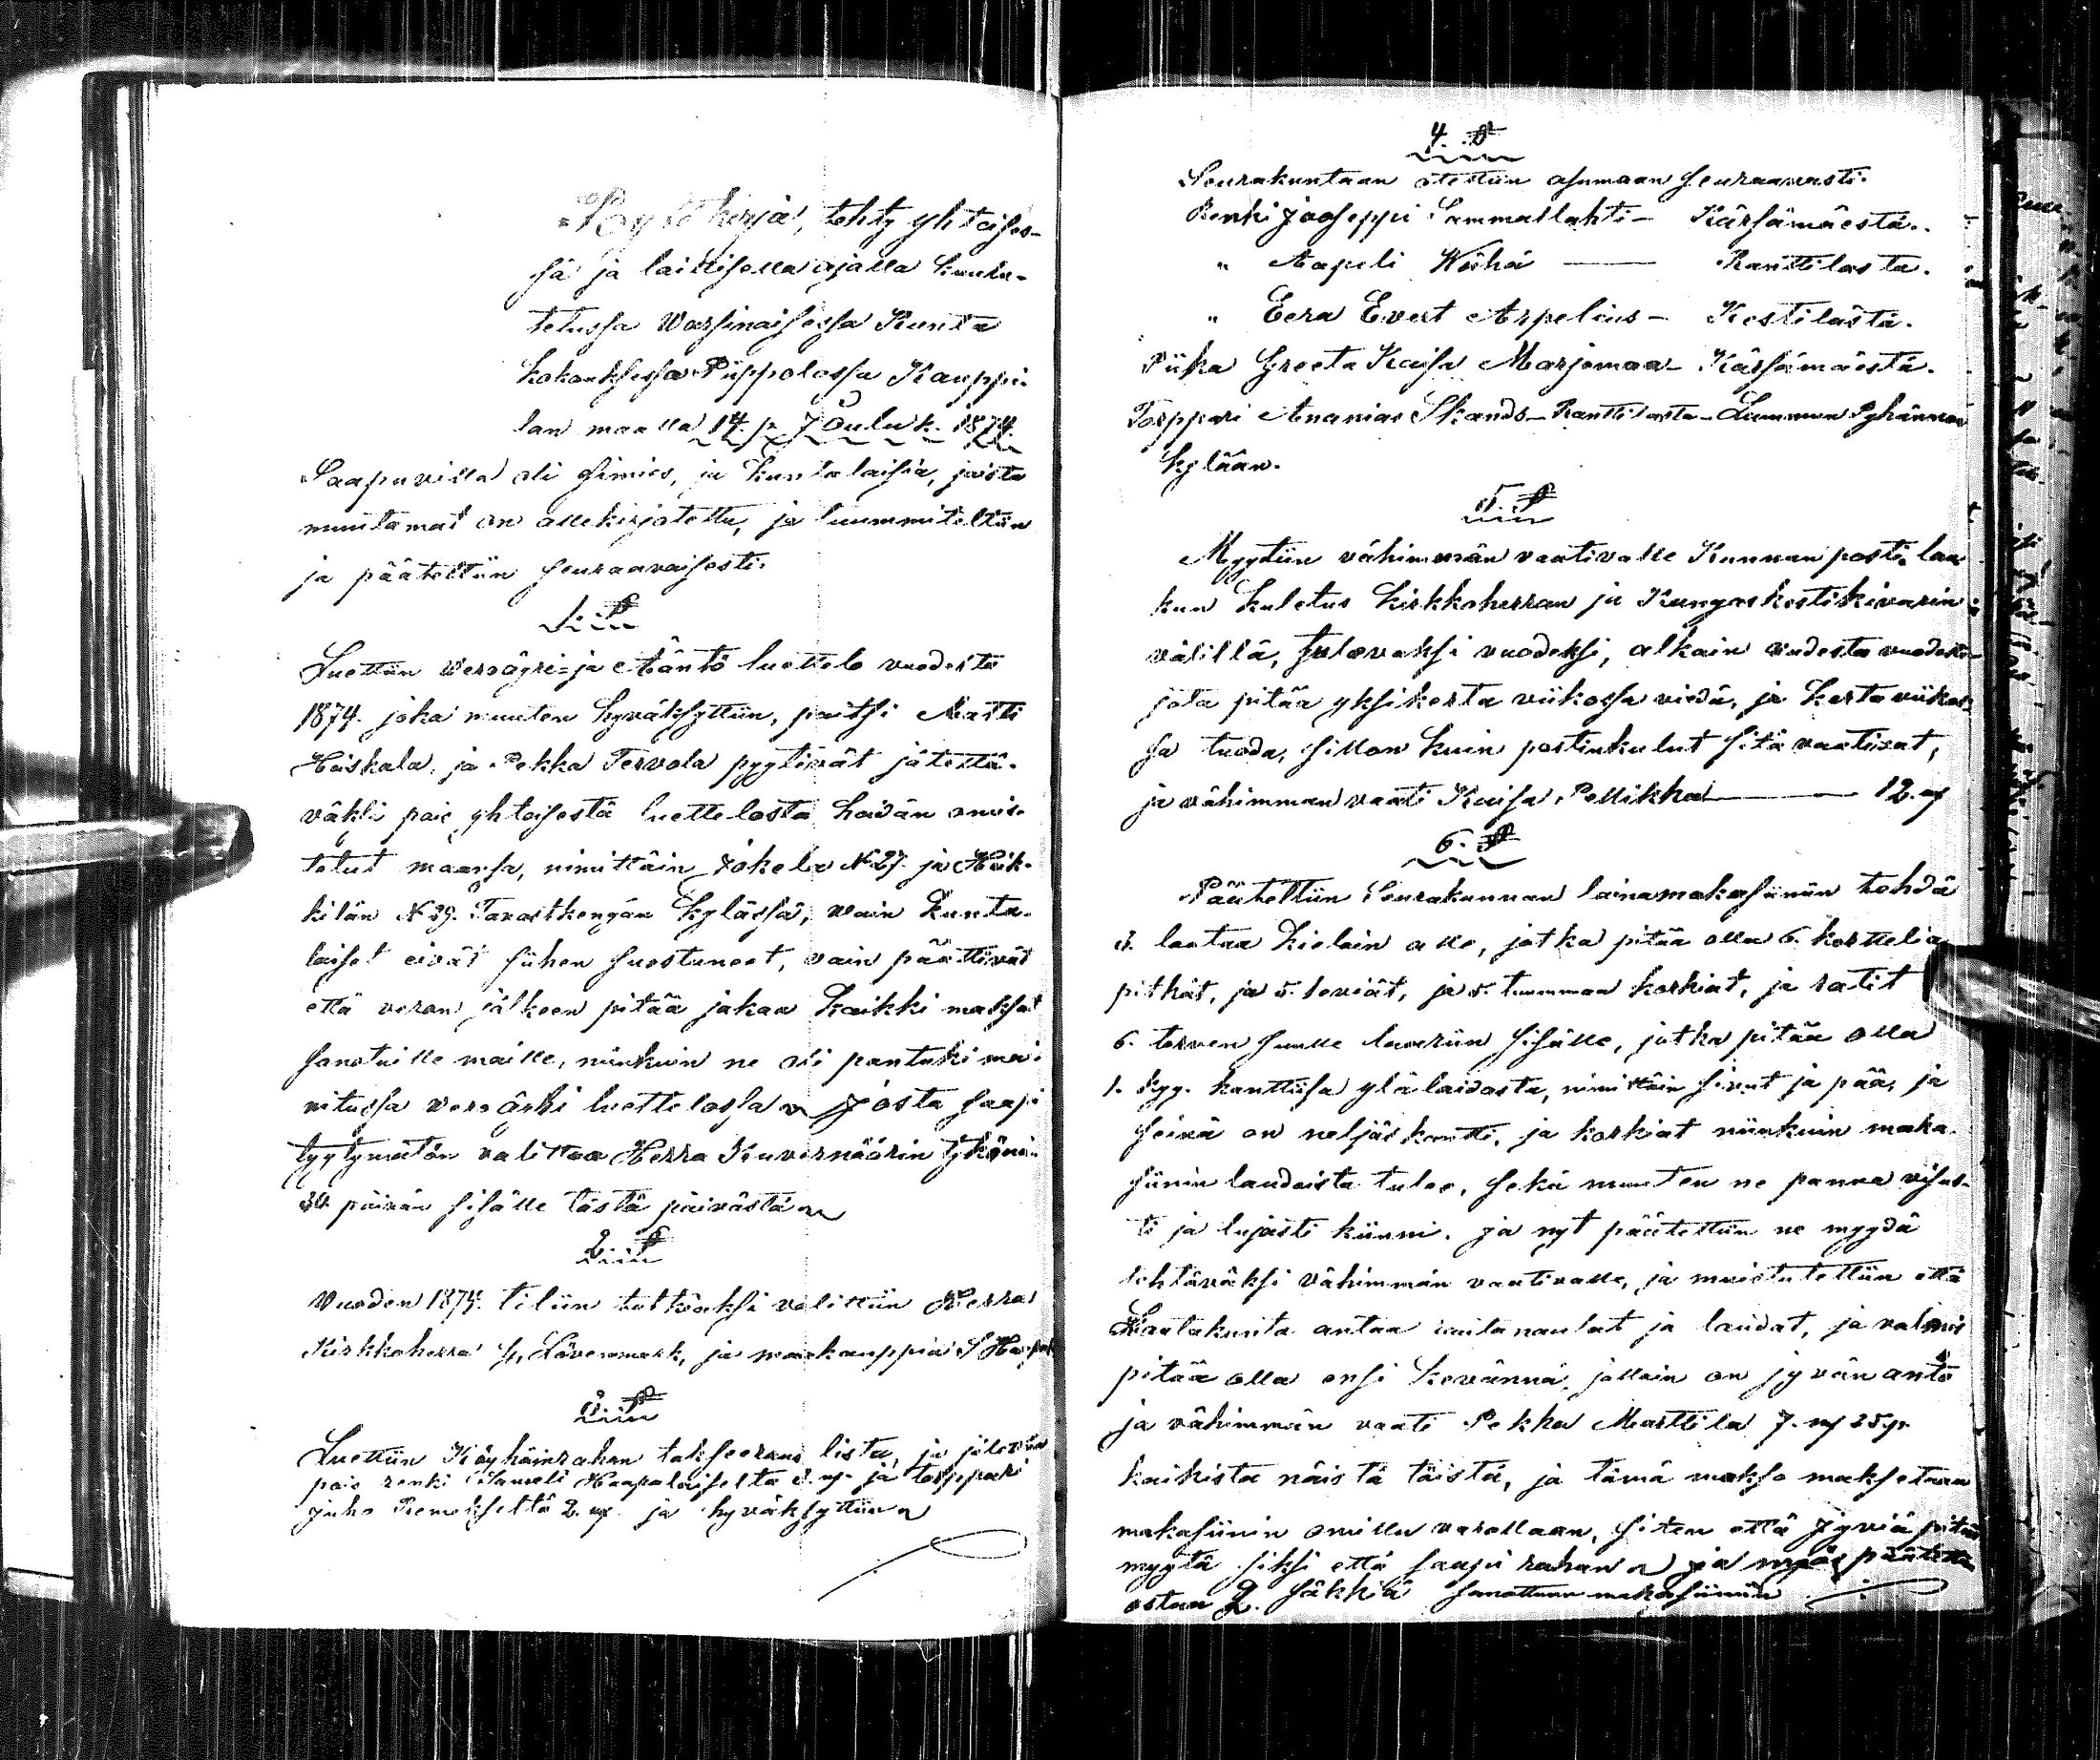 Pöytäkirja, tehty yhtaises-
sä ja laillisella ajalla kuulu-
tetussa Warsinaisessa Kunta
kokouksessa Piippolassa Kauppi-
lan maalla 14. p. Jouluk. 1874.
Saapuvilla oli Esimies, ja Kuntalaisia, joista
muutamat on allekirjotettu, ja tuummiteltiin
ja pääteltiin seuraavaisesti.
1. §
Luettiin veroäyri- ja Ääntö luettelo vuodesta
1874. joka muuten hyväksyttiin, paitsi Matti
Heiskala, ja Pekka Tervola pyytivät jätettä-
väksi pois yhtaisestä luettelosta heidän omis-
tetut maansa, nimittäin Jokela N:27. ja Heik-
kilän N:29. Tavastkengän kylässä, vain Kunta-
laiset eivät siihen suostuneet, vain päättivät
että veron jälkeen pitää jakaa kaikki maksut
sanotuille maille, niinkuin ne oli pantuki mai-
nitussa veroäyri luettelossa Josta saapi
tyytymätön valittaa Herra Kuvernöörin tykönä
30. päivän sisälle tästä päivästä
2. §
Vuoden 1874. tiliin tutkiaksi valittiin Herra
Kirkkoherra G. Lövenmark, ja maakauppias S.
3. §
Luettiin Köyhäinrahan takseeraus lista, ja jätettiin
pois renki Samuli Haapalaiselta 2. mk. ja torppari
Juho Remekseltä 2. mk. ja hyväksyttiin
4. §
Seurakuntaan otettiin asumaan seuraavasti.
Renki Jooseppi Sammallahti - Kärsämäestä.
" Aapeli Kähä — Ranttilasta.
" Eera Evert Arpelius - Kestilästä.
Piika Greeta Kaisa Marjomaa - Kärsämäestä.
Torppari Ananias Skands - Ranttilasta - Lamun Pyhännän
kylään.
5. §
Myytiin vähimmän vaativalle Kunnan posti lau
kun kuletus Kirkkoherran ja Kungas kestikivarin
välillä, tulevaksi vuodeksi, alkain uudesta vuodesta
jota pitää yksikerta viikossa viedä, ja kerta viikos-
sa tuoda, silloin kuin postinkulut sitä vaativat,
ja vähimman vaati Kaisa Pellikka — 12. mk
6. §
Pääteltiin Seurakunnan lainamakasiiniin tehdä
laataa alle, jotka pitää olla 6. korttelia
pitkät, ja 5. leviät, ja 5. tuumman korkiat, ja
6. terven laariin sisälle, jotka pitää olla
1. kyy. kanttiisa ylä laidasta, nimittäin sivut ja pää, ja
seinä on neljäs kantti, ja korkiat niinkuin maka-
siinin laudoista tulee, sekä muuten ne panna visus-
ti ja lujasti kiinni. Ja nyt päätettiin ne myydä
tehtäväksi vähimmän vaativalle, ja muistutettiin että
Lautakunta antaa rautanaulat ja laudat, ja valmis
pitää olla ensi kevännä, jolloin on jyvän anto
ja vähimmän vaati Pekka Marttila 7. mk 25 p.
kaikista näistä töistä, ja tämä makso maksetaan
makasiinin omilla varoillaan, siten että Jyviä pitää
myytä siksi että saapi rahan ja myös päätettiin
ostaa 2. säkkiä sanottuun makasiiniin